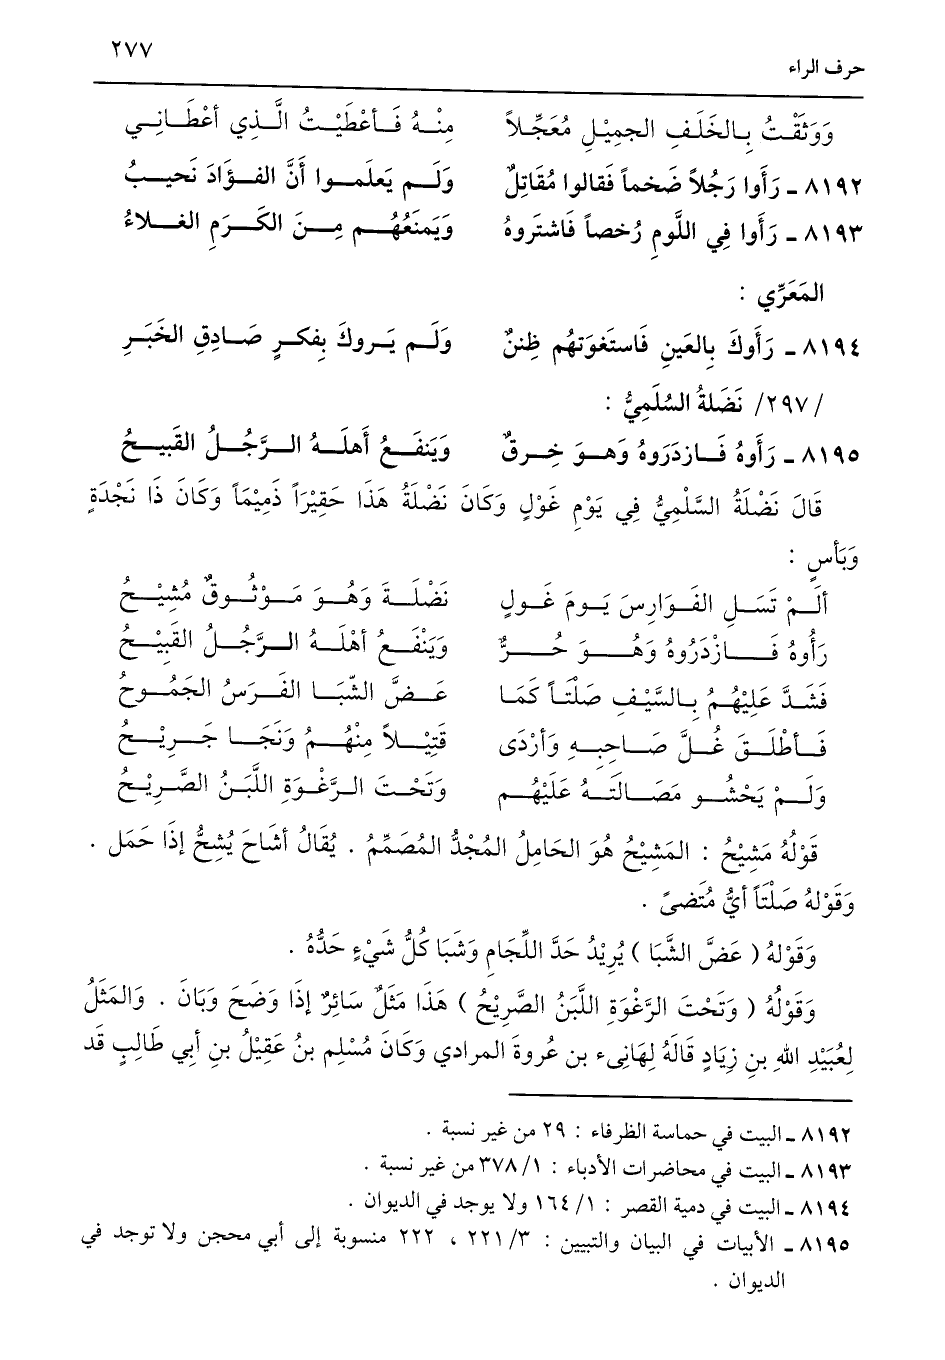 ٢٧٧
حرف الراء
وَوَثَقْتُ بِالخَلَفِ الجمِيْلِ مُعَجِّلاً مِنْهُ فَأعْطَيْتُ الَّذِي أعْطَانِي
٨١٩٢ ـ رَأَوا رَجُلاً ضَخماً فَقالوا مُقَاتِلٌ وَلَم يَعلَموا أَنَّ الفؤَادَ نَحيبُ
٨١٩٣ ـ رَأَوا فِي اللَّومِ رُخصاً فَاشتَروهُ وَيَمنَعُهُم مِنَ الكَرَمِ الغلاءُ
المَعَرِّي :
٨١٩٤ ـ رَأَوكَ بِالعَينِ فَاستَغوَتهُم ظِننٌ وَلَم يَروكَ بِفكرٍ صَادِقِ الخَبَرِ
/٢٩٧/ نَضَلةُ السُلَمِيُّ :
٨١٩٥ ـ رَأَوهُ فَازدَرَوهُ وَهوَ خِرقٌ وَيَنفَعُ أَهلَهُ الرَّجُلُ القَبيحُ
قَالَ نَضْلَةُ السَّلْمِيُّ فِي يَوْمِ غَوْلٍ وَكَانَ نَضْلَةُ هَذَا حَقِيْرَاً ذَمِيْمَاً وَكَانَ ذَا نَجْدَةٍ
وَبَأسٍ :
أَلَمْ تَسَلِ الفَوَارِسَ يَومَ غَولٍ نَضْلَةَ وَهُوَ مَوْثُوقٌ مُشِيْحُ
رَأُوهُ فَازْدَرُوهُ وَهُوَ حُرٌّ وَيَنْفَعُ أهْلَهُ الرَّجُلُ القَبِيْحُ
فَشَدَّ عَلِيْهُمُ بِالسَّيْفِ صَلْتَاً كَمَا عَضَّ الشّبَا الفَرَسُ الجَمُوحُ
فَأطْلَقَ غُلَّ صَاحِبِهِ وَأرْدَى قَتِيْلاً مِنْهُمُ وَنَجَا جَرِيْحُ
وَلَمْ يَخْشُو مَصَالَتَهُ عَلَيْهُم وَتَحْتَ الرَّغْوَةِ اللَّبَنُ الصَّرِيْحُ
قَوْلُهُ مَشِيْحُ : المَشِيْحُ هُوَ الحَامِلُ المُجْدُّ المُصَمِّمُ . يُقَالُ أشَاحَ يُشِحُّ إذَا حَمَل .
وَقَوْلهُ صَلْتَاً أيُّ مُتَضىً .
وَقَوْلهُ ( عَضَّ الشَّبَا ) يُرِيْدُ حَدَّ اللِّجَامِ وَشَبَا كُلُّ شَيْءٍ حَدُّهُ .
وَقَوْلُهُ ( وَتَحْتَ الرَّغْوَةِ اللَّبَنُ الصَّرِيْحُ ) هَذَا مَثَلٌ سَائِرٌ إذَا وَضَحَ وَبَانَ . وَالمَثَلُ
لِعُبَيْدِ اللهِ بنِ زِيَادٍ قَالَهُ لِهَانِىء بن عُروةَ المرادي وَكَانَ مُسْلِم بنُ عَقِيْلُ بنِ أبي طَالِبٍ قَد
٨١٩٢ ـ البيت في حماسة الظرفاء : ٢٩ من غير نسبة .
٨١٩٣ ـ البيت في محاضرات الأدباء : ١/ ٣٧٨ من غير نسبة .
٨١٩٤ ـ البيت في دمية القصر : ١/ ١٦٤ ولا يوجد في الديوان .
٨١٩٥ ـ الأبيات في البيان والتبيين : ٣/ ٢٢١ ، ٢٢٢ منسوبة إلى أبي محجن ولا توجد في
الديوان .